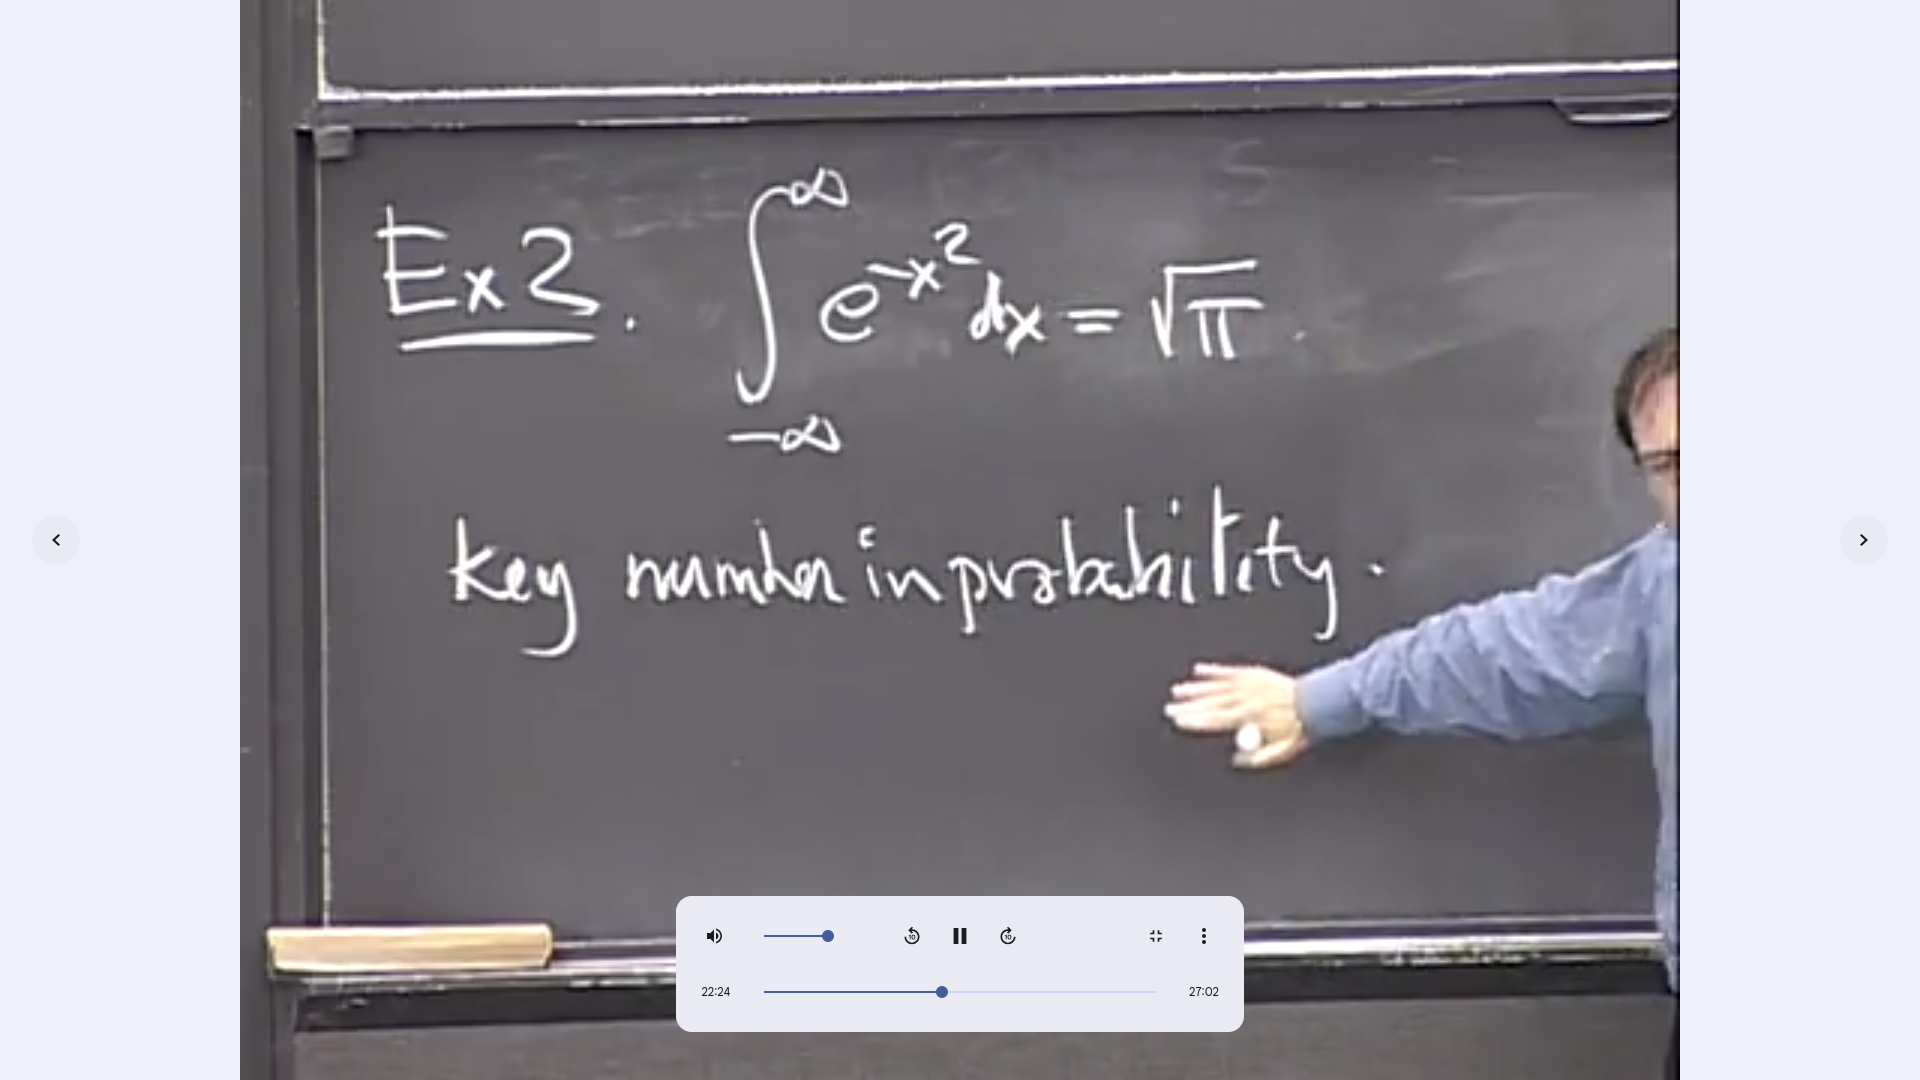 Ex 2. ∫_{-∞}^{∞} e^{-x^2} dx = √π.
key number in probability.
22:24
27:02